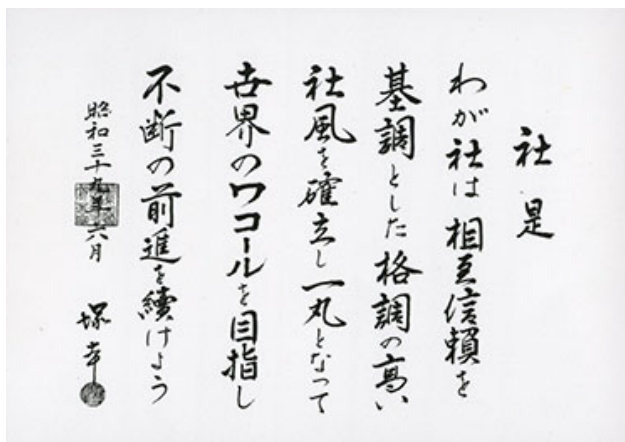 社是
わが社は相互信頼を
基調とした格調の高い
社風を確立し一丸となって
世界のワコールを目指し
不断の前進を續けよう
昭和三十九年六月 塚幸一